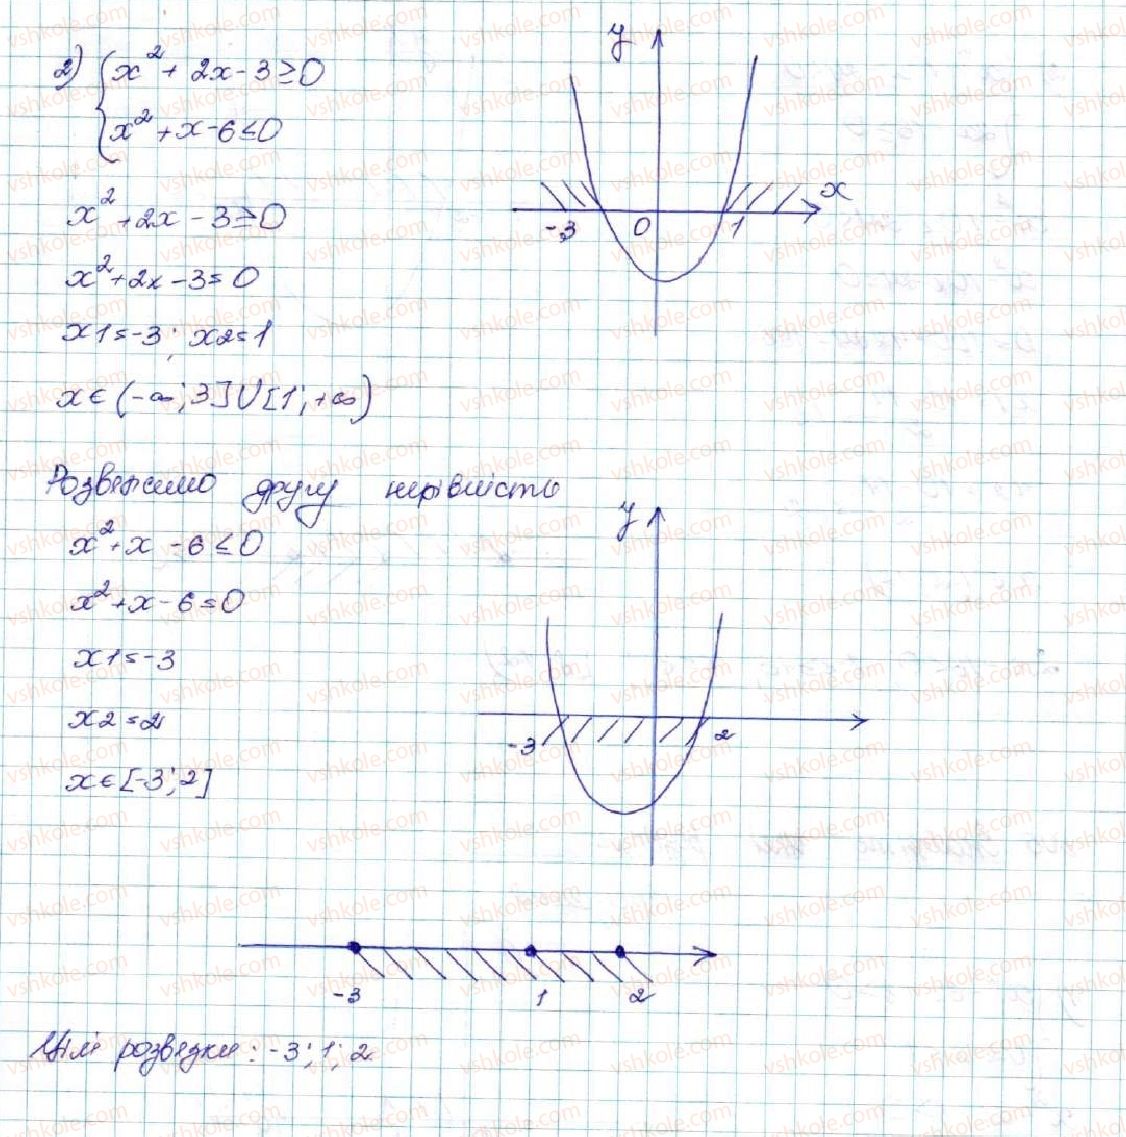 2) { x² + 2x - 3 ≥ 0
x² + x - 6 ≤ 0
x² + 2x - 3 ≥ 0
x² + 2x - 3 = 0
x1 = -3; x2 = 1
x ∈ (-∞; 3] U [1; +∞)
y
x
-3 0 1
Розвяжемо другу нерівність
x² + x - 6 ≤ 0
x² + x - 6 = 0
x1 = -3
x2 = 2
x ∈ [-3; 2]
y
-3 2
-3 1 2
Цілі розвязки: -3; 1; 2
vshkole.com